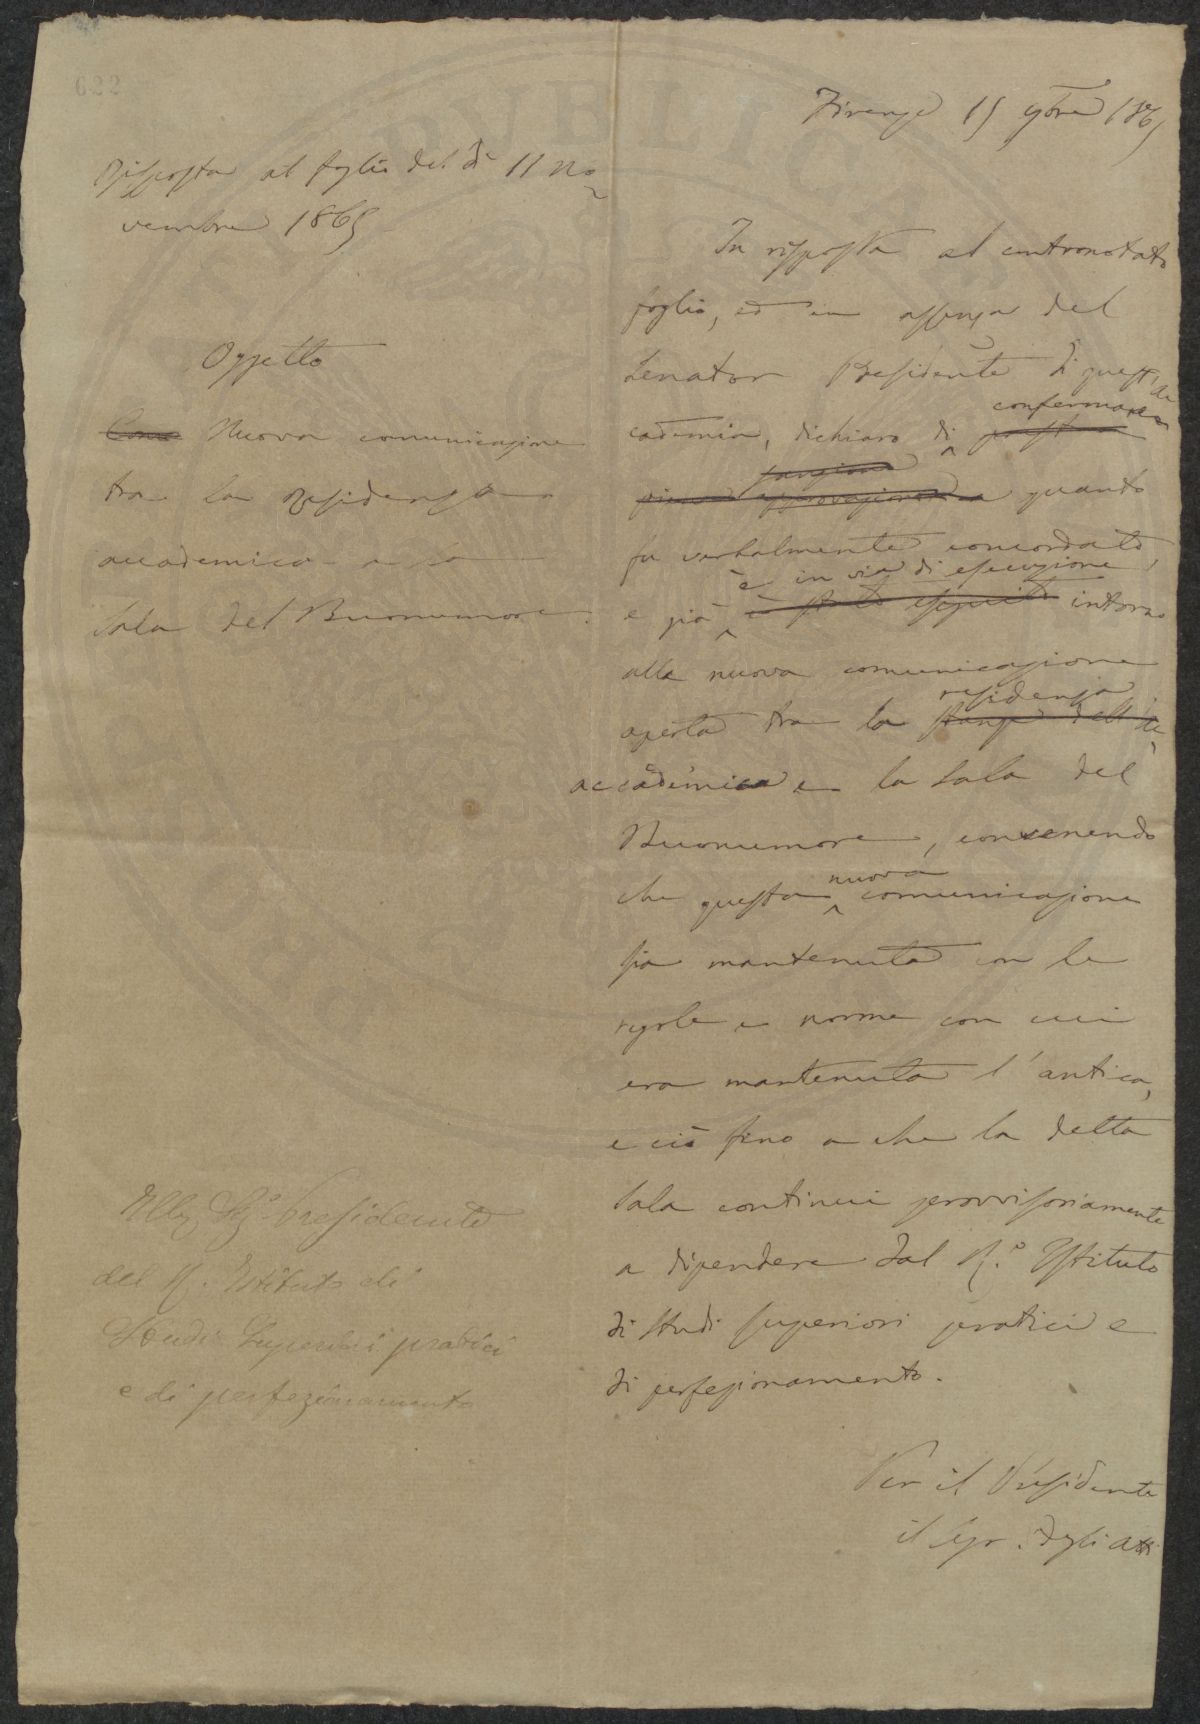 622
Firenze 15 9bre 1865
Risposta al foglio del dì 11 No
vembre 1865
Oggetto
Nuova comunicazione
tra la Residenza
accademica e la
Sala del Buonumore.
In risposta al contronotato
foglio, ed in assenza del
Senator Presidente di quest'Ac
cademia, dichiaro di confermare
sanzione
piena approvazione a quanto
fu verbalmente concordato,
e già è in via di esecuzione
è stato eseguito intorno
alla nuova comunicazione
aperta tra la residenza
stanze dell'Ac
accademica e la Sala del
Buonumore, convenendo
che questa nuova comunicazione
sia mantenuta con le
regole e norme con cui
era mantenuta l'antica,
e ciò fino a che la detta
Sala continui provvisoriamente
a dipendere dal R.º Istituto
di studi superiori pratici e
di perfezionamento.
Per il Presidente
il Segr. degli Atti
Illº Sigº Presidente
del R. Istituto di
Studi Superiori pratici
e di perfezionamento